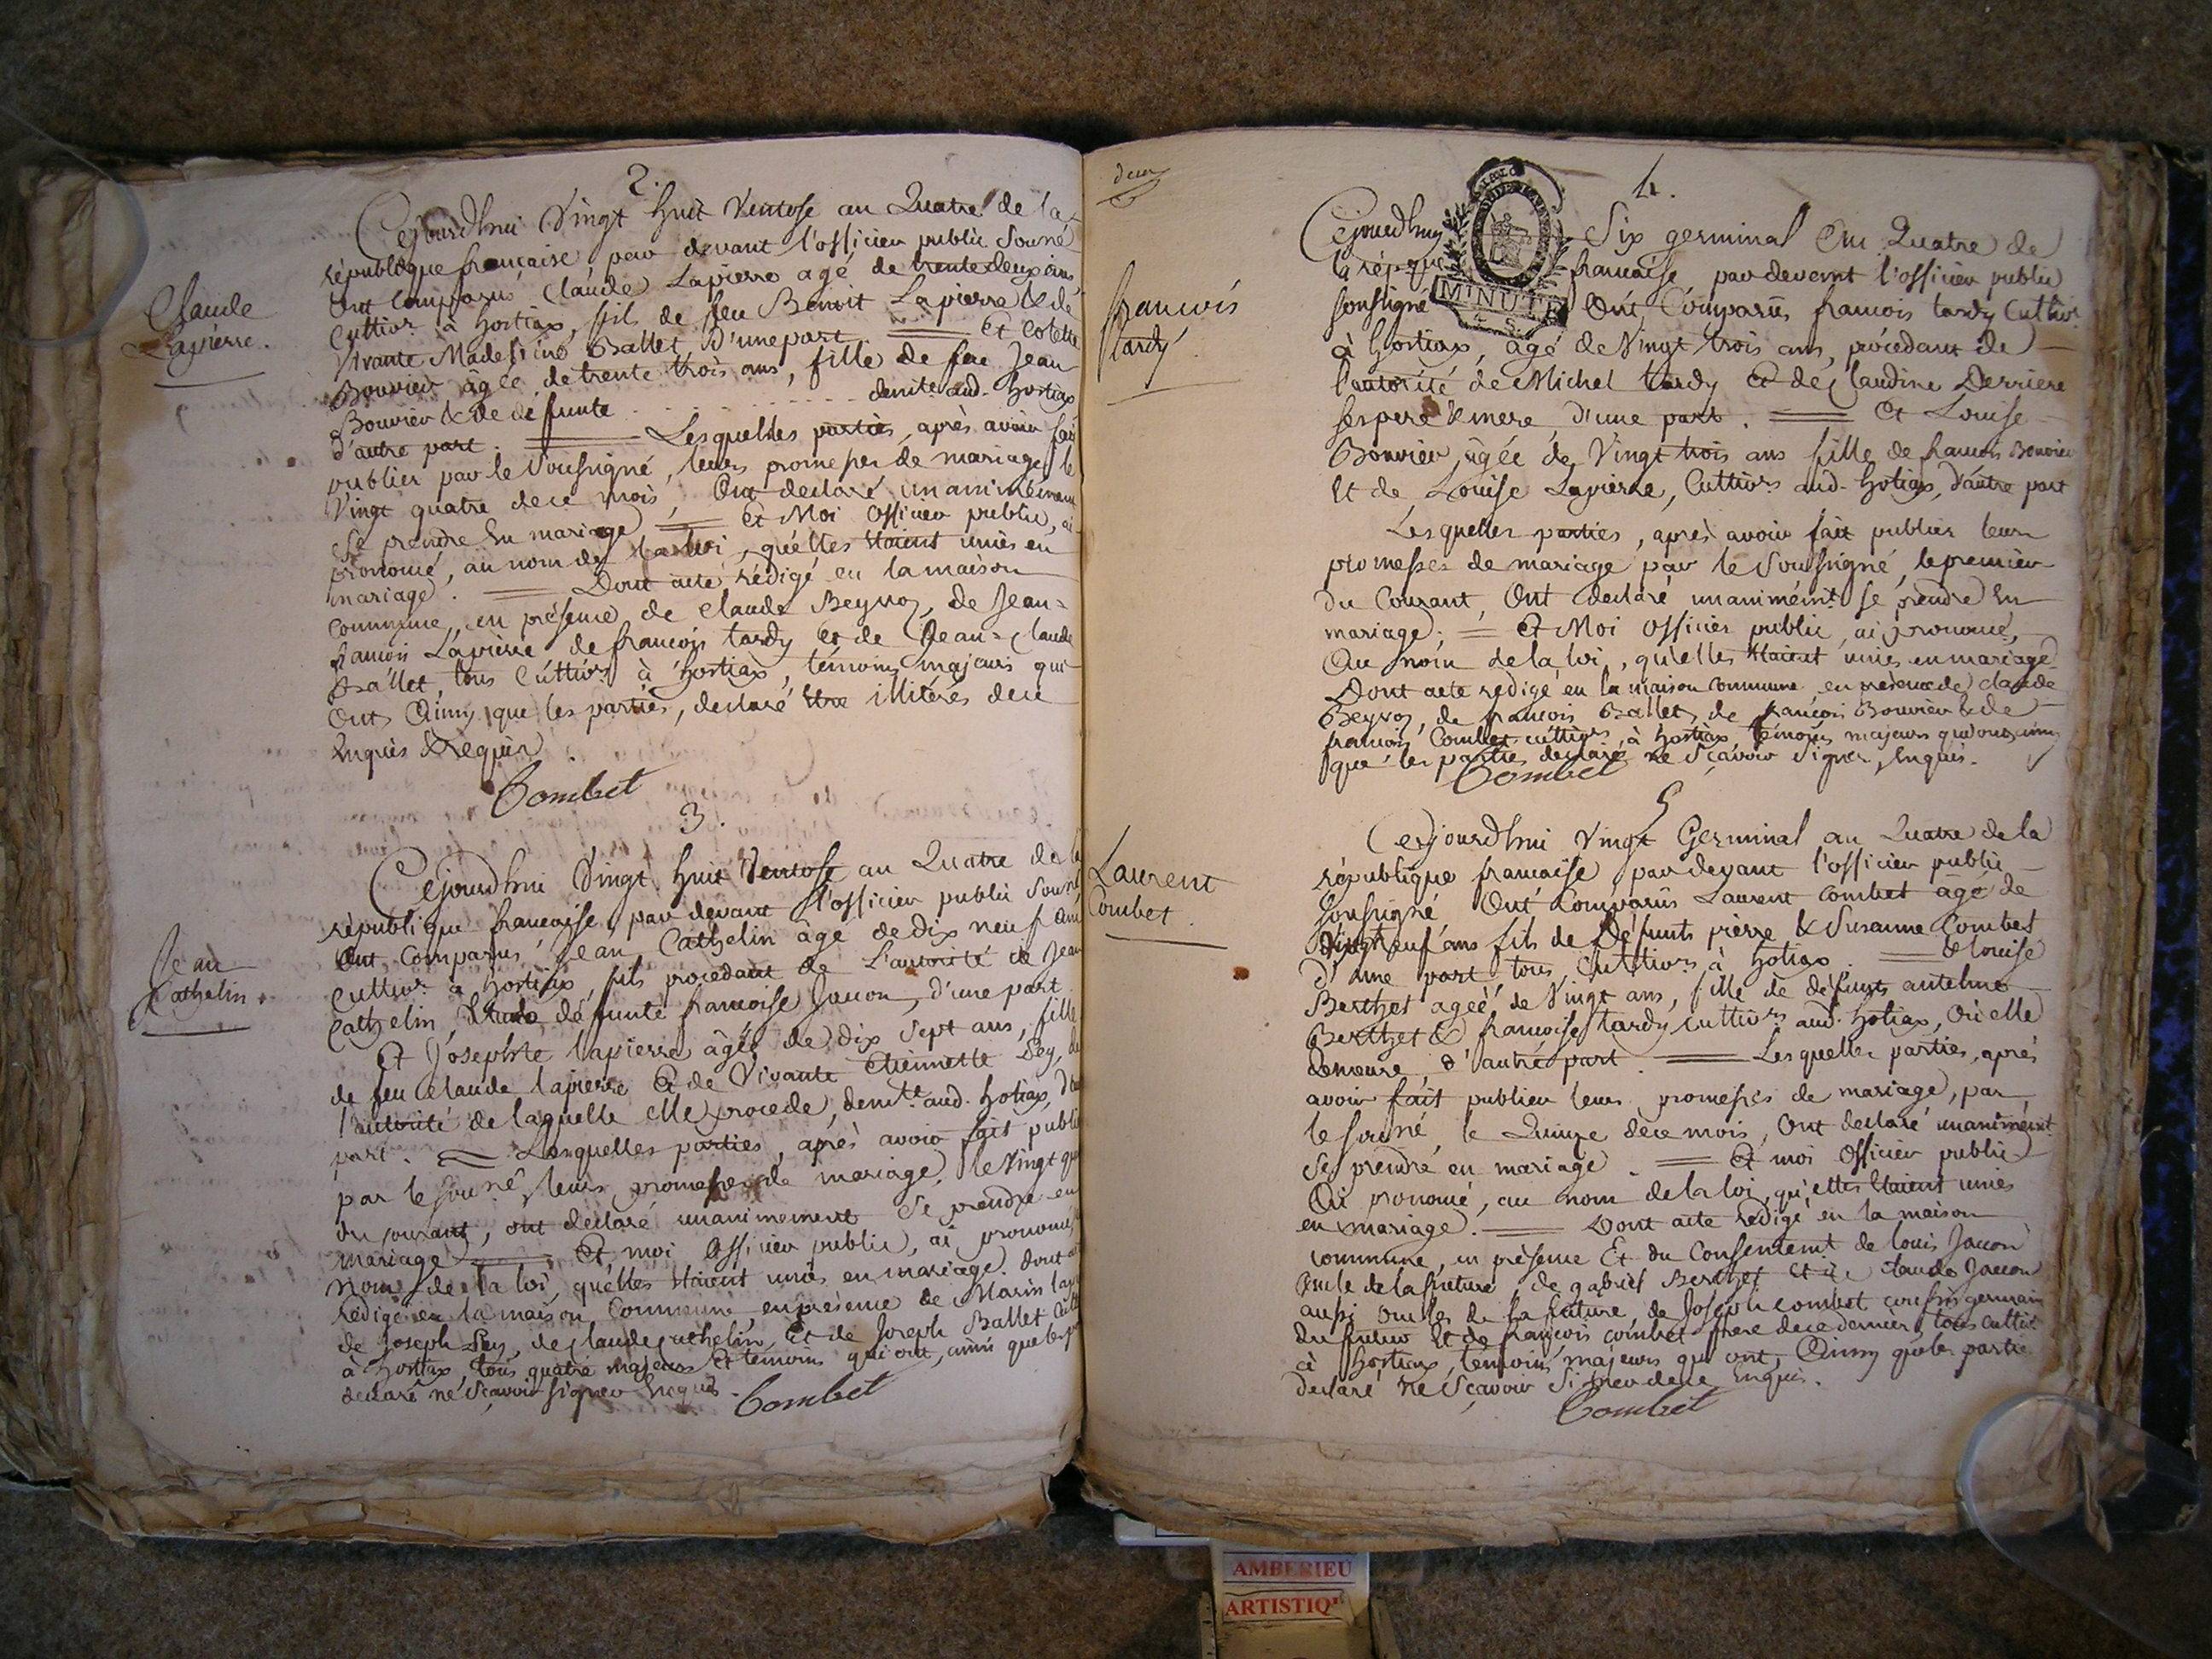 2.
Cejourdhui Vingt huit Ventose an Quatre de la
république francaise par devant l'officier public souné
Ont Comparus Claude Lapierre agé de trente deux ans
Claude
Lapierre.
Cultivr à hostiax, fils de feu Benoit Lapierre & de
Vivante Madeleine Ballet d'une part. Et Colette
Bouvier âgée de trente trois ans, fille de feu Jean
Bouvier & de défunte demte aud. hostiax
d'autre part. Lesquelles parties, après avoir fait
publier par le Soussigné, leurs promesses de mariage le
Vingt quatre de ce mois, Ont declaré unanimément
se prendre en mariage Et Moi Officier public, ai
prononcé, au nom de la loi, qu'elles étaient unies en
mariage. Dont acte rédigé en la maison
commune, en présence de Claude Beyvoz, de Jean=
francois Lapierre de francois tardy et de Jean=Claude
Ballet, tous Cultivrs à hostiax, témoins majeurs qui
Ont Ainsy que les parties, declaré être illitérés de ce
Enquis & requis.
Combet
3.
Cejourdhui Vingt huit Ventose an Quatre de la
république francaise, par devant l'officier public souné
Ont Comparus Jean Cathelin âgé de dix neuf ans
Jean
Cathelin.
Cultivr à hostiax, fils procedant de L'autorité de Jean
Cathelin, & de défunte francoise Jacon, d'une part
Et Josephte lapierre âgée de dix sept ans, fille
de feu Claude lapierre Et de Vivante etiennette Pey, de
l'autorité de laquelle elle procede, demte aud. hotiax, d'au
part. Lesquelles parties, après avoir fait public
par le souné, leurs promesses de mariage, le Vingt qua
du courant, ont declaré unanimement se prendre en
mariage Et moi Officier public, ai prononcé,
Nom de la loi, qu'elles étaient unies en mariage. dont
rédigé en la maison Commune en présence de Marin
de Joseph Pey, de Claude Cathelin, Et de Joseph Ballet
à hostiax, tous quatre majeurs Et temoins qui ont, ainsi que les
declaré ne sçavoir signer Enquis.
Combet
deux
4.
Cejourdhuy Six germinal An Quatre de
la répque francaise par devent l'officier public
MINUTE
soussigné Ont Comparus francois tardy Cultivr
francois
tardy.
à hostiax, âgé de Vingt trois ans, procedant de
l'autorité de Michel tardy Et de Claudine Derriere
ses pere & mere, d'une part. Et Louise
Bouvier, âgée de Vingt trois ans fille de francois Bouvier
Et de Louise Lapierre, Cultivrs aud. hotiax, d'autre part
Lesquelles parties, après avoir fait publier leurs
promesses de mariage par le Soussigné, le premier
du Courant, Ont declaré unanimémt se prendre En
mariage; Et Moi Officier public, ai prononcé,
Au nom de la loi, qu'elles étaient unies en mariage.
Dont acte redigé en la maison commune en présence de claude
Beyvoz, de francois Ballet, de francois Bouvier & de
francois Combet cultivrs à hostiax témoins majeurs qui ont ainsy
que les parties declaré ne sçavoir signer, Enquis.
Combet
5
Cejourdhui Vingt Germinal an Quatre de la
république francaise par devant l'officier public
Soussigné Ont Comparus Laurent Combet âgé de
Laurent
Combet.
Vingt neuf ans fils de défunts pierre & Susanne Combet
d'une part, tous Cultivrs à hotiax. & louise
Berthet ageé de Vingt ans, fille de défunts antelme
Berthet & francoise tardy cultivrs aud. hotiax, Ou elle
demeure, d'autre part. Lesquelles parties, après
avoir fait publier leurs promesses de mariage, par
le souné, le Quinze de ce mois, Ont declaré unanimémt
Se prendre en mariage. Et moi Officier public
Ai prononcé, au nom de la loi, qu'elles étaient unies
en mariage. Dont acte redigé en la maison
commune, en présence Et du Consentemt de louis Jacon
Oncle de la future, de gabriel Berthet Et de Claude Jacon
aussi Oncles de la future, de Joseph combet cousin germain
du futur Et de francois combet frere de ce dernier, tous cultivrs
à hostiax, temoins majeurs qui ont, Ainsy que les partie
declaré ne sçavoir signer de ce Enquis.
Combet
AMBERIEU
ARTISTIQ